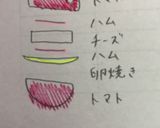 トマト
ハム
チーズ
ハム
卵焼き
トマト